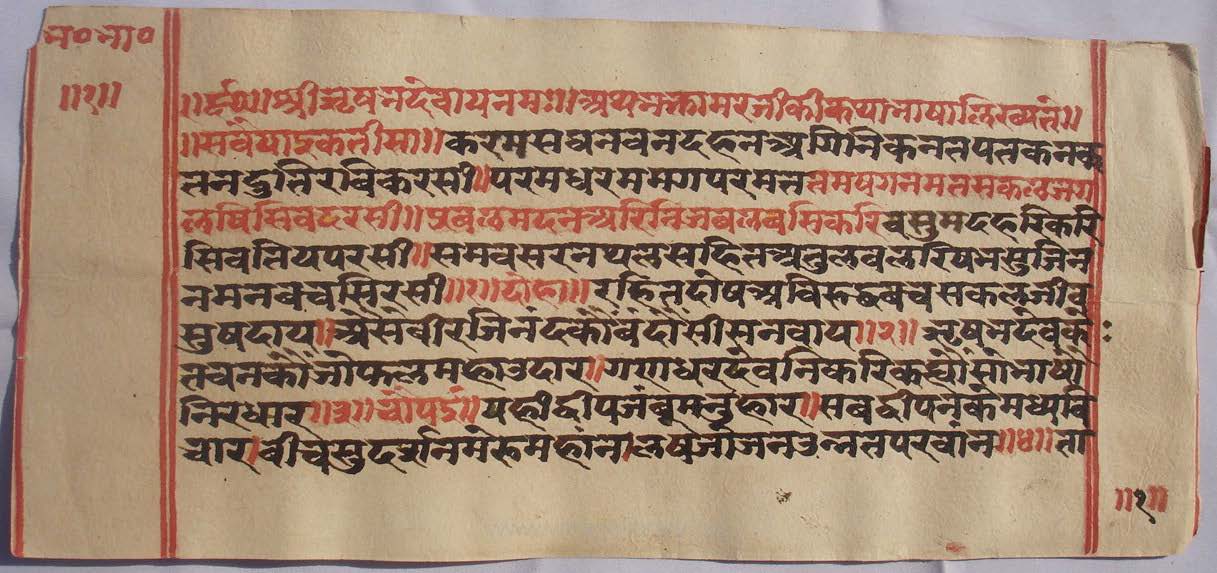 भ०भा०
॥१॥
॥श्रीऋषभदेवायनमः॥अथभक्तामरजीकीकथाभाषालिख्यते॥
॥सवैयाइकतीसा॥करमसघनवनदहनअगिनिकनतपतकनक
तनदुतिरविकरसी॥परमधरममगपरमततमषगनमतमकलजग
लषिसिवदरसी॥प्रबलमदनअरिनिजबलवसिकरिवसुमदहरिकरि
सिवतियपरसी॥समवसरनथलसहितअतुलवलरिषभसुजिन
नमनवचसिरसी॥१॥दोहा॥रहितदोषअविरुद्धवचसकलजीव
सुषदाय॥अैसेवीरजिनंदकौंवंदौंसीसनवाय॥२॥ऋषभदेवके
तवनकौंजोफलमहाउदार॥गणधरदेवनिकरिकह्यौसोभाषौं
निरधार॥३॥चौपई॥यहीद्वीपजंबूमनुहार॥सबद्वीपनकेमध्यवि
चार।वीचसुदर्शनमेरुमहांन।लषजोजनउन्नतपरवांन॥४॥ता
॥१॥